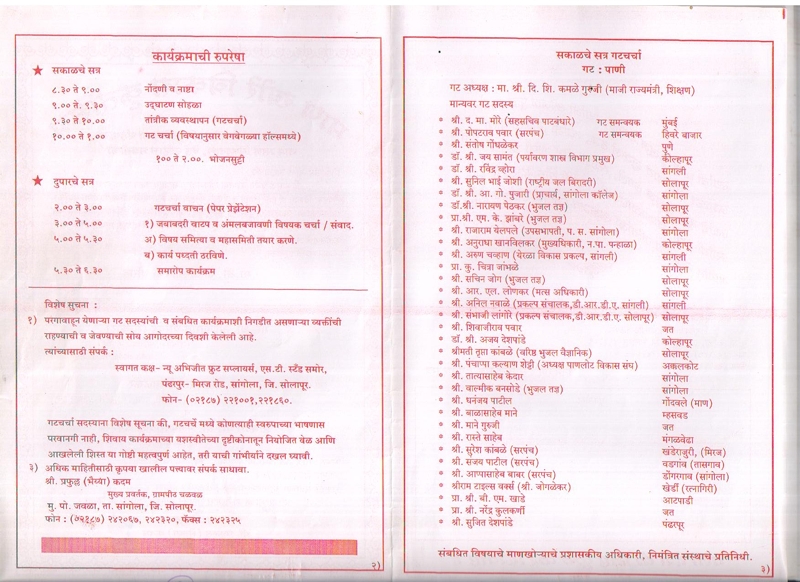 कार्यक्रमाची रुपरेषा
★ सकाळचे सत्र
८.३० ते ९.०० नोंदणी व नाष्टा
९.०० ते. ९.३० उद्घाटण सोहळा
९.३० ते १०.०० तांत्रीक व्यवस्थापन (गटचर्चा)
१०.०० ते १.०० गट चर्चा (विषयानुसार वेगवेगळ्या हॉल्समध्ये)
१०० ते २.०० भोजनसुट्टी
★ दुपारचे सत्र
२.०० ते ३.०० गटचर्चा वाचन (पेपर प्रेझेंटेशन)
३.०० ते ५.०० १) जबाबदारी वाटप व अंमलबजावणी विषयक चर्चा / संवाद.
५.०० ते ५.३० अ) विषय समित्या व महासमिती तयार करणे.
ब) कार्य पध्दती ठरविणे.
५.३० ते ६.३० समारोप कार्यक्रम
विशेष सुचना :
१) परगावाहून येणाऱ्या गट सदस्यांची व संबंधित कार्यक्रमाशी निगडीत असणाऱ्या व्यक्तींची
राहण्याची व जेवण्याची सोय आगोदरच्या दिवशी केलेली आहे.
त्यांच्यासाठी संपर्क :
स्वागत कक्ष- न्यू अभिजीत फ्रुट सप्लायर्स, एस.टी. स्टँड समोर,
पंढरपुर- मिरज रोड, सांगोला, जि. सोलापूर.
फोन- (०२१८७) २२१००१,२२१८६०.
गटचर्चा सदस्याना विशेष सुचना की, गटचर्चे मध्ये कोणत्याही स्वरुपाच्या भाषणास
परवानगी नाही, शिवाय कार्यक्रमाच्या यशस्वीतेच्या दृष्टीकोनातून नियोजित वेळ आणि
आखलेली शिस्त या गोष्टी महत्वपुर्ण आहेत, तरी याची गांभीर्याने दखल घ्यावी.
३) अधिक माहितीसाठी कृपया खालील पत्त्यावर संपर्क साधावा.
श्री. प्रफुल्ल (भैय्या) कदम
मुख्य प्रवर्तक, ग्रामपीठ चळवळ
मु. पो. जवळा, ता. सांगोला, जि. सोलापूर.
फोन : (०२१८७) २४२०६७, २४२३२०, फॅक्स : २४२३२५
२)
सकाळचे सत्र गटचर्चा
गट : पाणी
गट अध्यक्ष : मा. श्री. दि. शि. कमळे गुरुजी (माजी राज्यमंत्री, शिक्षण)
मान्यवर गट सदस्य
श्री. द. मा. मोरे (सहसचिव पाटबंधारे) गट समन्वयक मुंबई
श्री. पोपटराव पवार (सरपंच) गट समन्वयक हिवरे बाजार
श्री. संतोष गोंधळेकर पुणे
डॉ. श्री. जय सामंत (पर्यावरण शास्त्र विभाग प्रमुख) कोल्हापूर
डॉ. श्री. रविंद्र व्होरा सांगली
श्री. सुनिल भाई जोशी (राष्ट्रीय जल बिरादरी) सोलापूर
डॉ. श्री. आ. गो. पुजारी (प्राचार्य, सांगोला कॉलेज) सांगोला
डॉ.श्री. नारायण पेठकर (भुजल तज्ञ) सोलापूर
प्रा.श्री. एम. के. झांबरे (भुजल तज्ञ) सोलापूर
श्री. राजाराम येलपले (उपसभापती, प. स. सांगोला) सांगोला
श्री. अनुराधा खानविलकर (मुख्याधिकारी, न.पा. पन्हाळा) कोल्हापूर
श्री. अरुण चव्हाण (येरळा विकास प्रकल्प, सांगली) सांगली
प्रा. कु. चित्रा जांभळे सांगोला
श्री. सचिन जोग (भुजल तज्ञ) सोलापूर
श्री. आर. एल. लोणकर (मत्स अधिकारी) सोलापूर
श्री. अनिल नवाळे (प्रकल्प संचालक,डी.आर.डी.ए. सांगली) सांगली
श्री. संभाजी लांगोरे (प्रकल्प संचालक,डी.आर.डी.ए. सोलापूर) सोलापूर
श्री. शिवाजीराव पवार जत
डॉ. श्री. अजय देशपांडे कोल्हापूर
श्रीमती तृप्ता कांबळे (वरिष्ठ भुजल वैज्ञानिक) सोलापूर
श्री. पंचाप्पा कल्याण शेट्टी (अध्यक्ष पाणलोट विकास संघ) अक्कलकोट
श्री. तात्यासाहेब केदार सांगोला
श्री. वाल्मीक बनसोडे (भुजल तज्ञ) सांगोला
श्री. धनंजय पाटील गोंदवले (माण)
श्री. बाळासाहेब माने म्हसवड
श्री. माने गुरुजी जत
श्री. रास्ते साहेब मंगळवेढा
श्री. सुरेश कांबळे (सरपंच) खंडेराजुरी, (मिरज)
श्री. संजय पाटील (सरपंच) वडगाव (तासगाव)
श्री. आप्पासाहेब बाबर (सरपंच) डोंगरगाव (सांगोला)
श्रीराम टाइल्स वर्क्स (श्री. जोगळेकर) खेर्डी (रत्नागिरी)
प्रा. श्री. बी. एम. खाडे आटपाडी
प्रा. श्री. नरेंद्र कुलकर्णी जत
श्री. सुजित देशपांडे पंढरपूर
संबंधित विषयाचे माणखोऱ्याचे प्रशासकीय अधिकारी, निमंत्रित संस्थाचे प्रतिनिधी.
३)